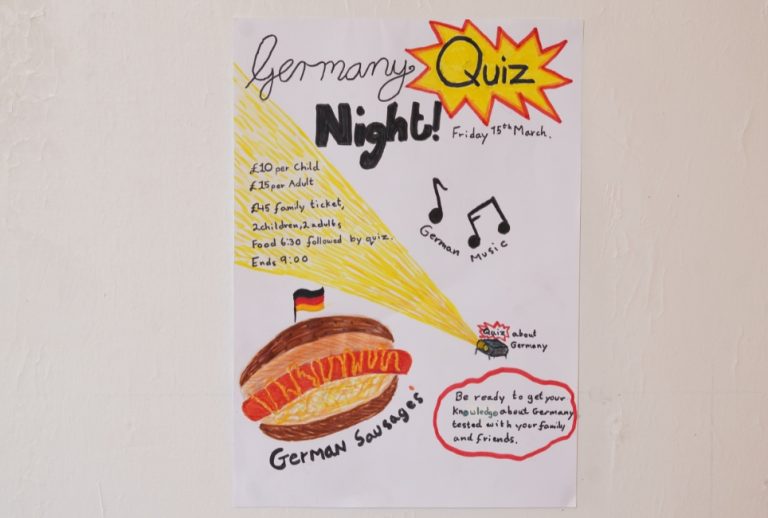 Germany Quiz
Night!
Friday 15th March.
£10 per Child
£15 per Adult
£45 family ticket,
2children, 2adults
Food 6:30 followed by quiz.
Ends 9:00
German Music
Quiz about
Germany
German Sausages
Be ready to get your
knowledge about Germany
tested with your family
and friends.